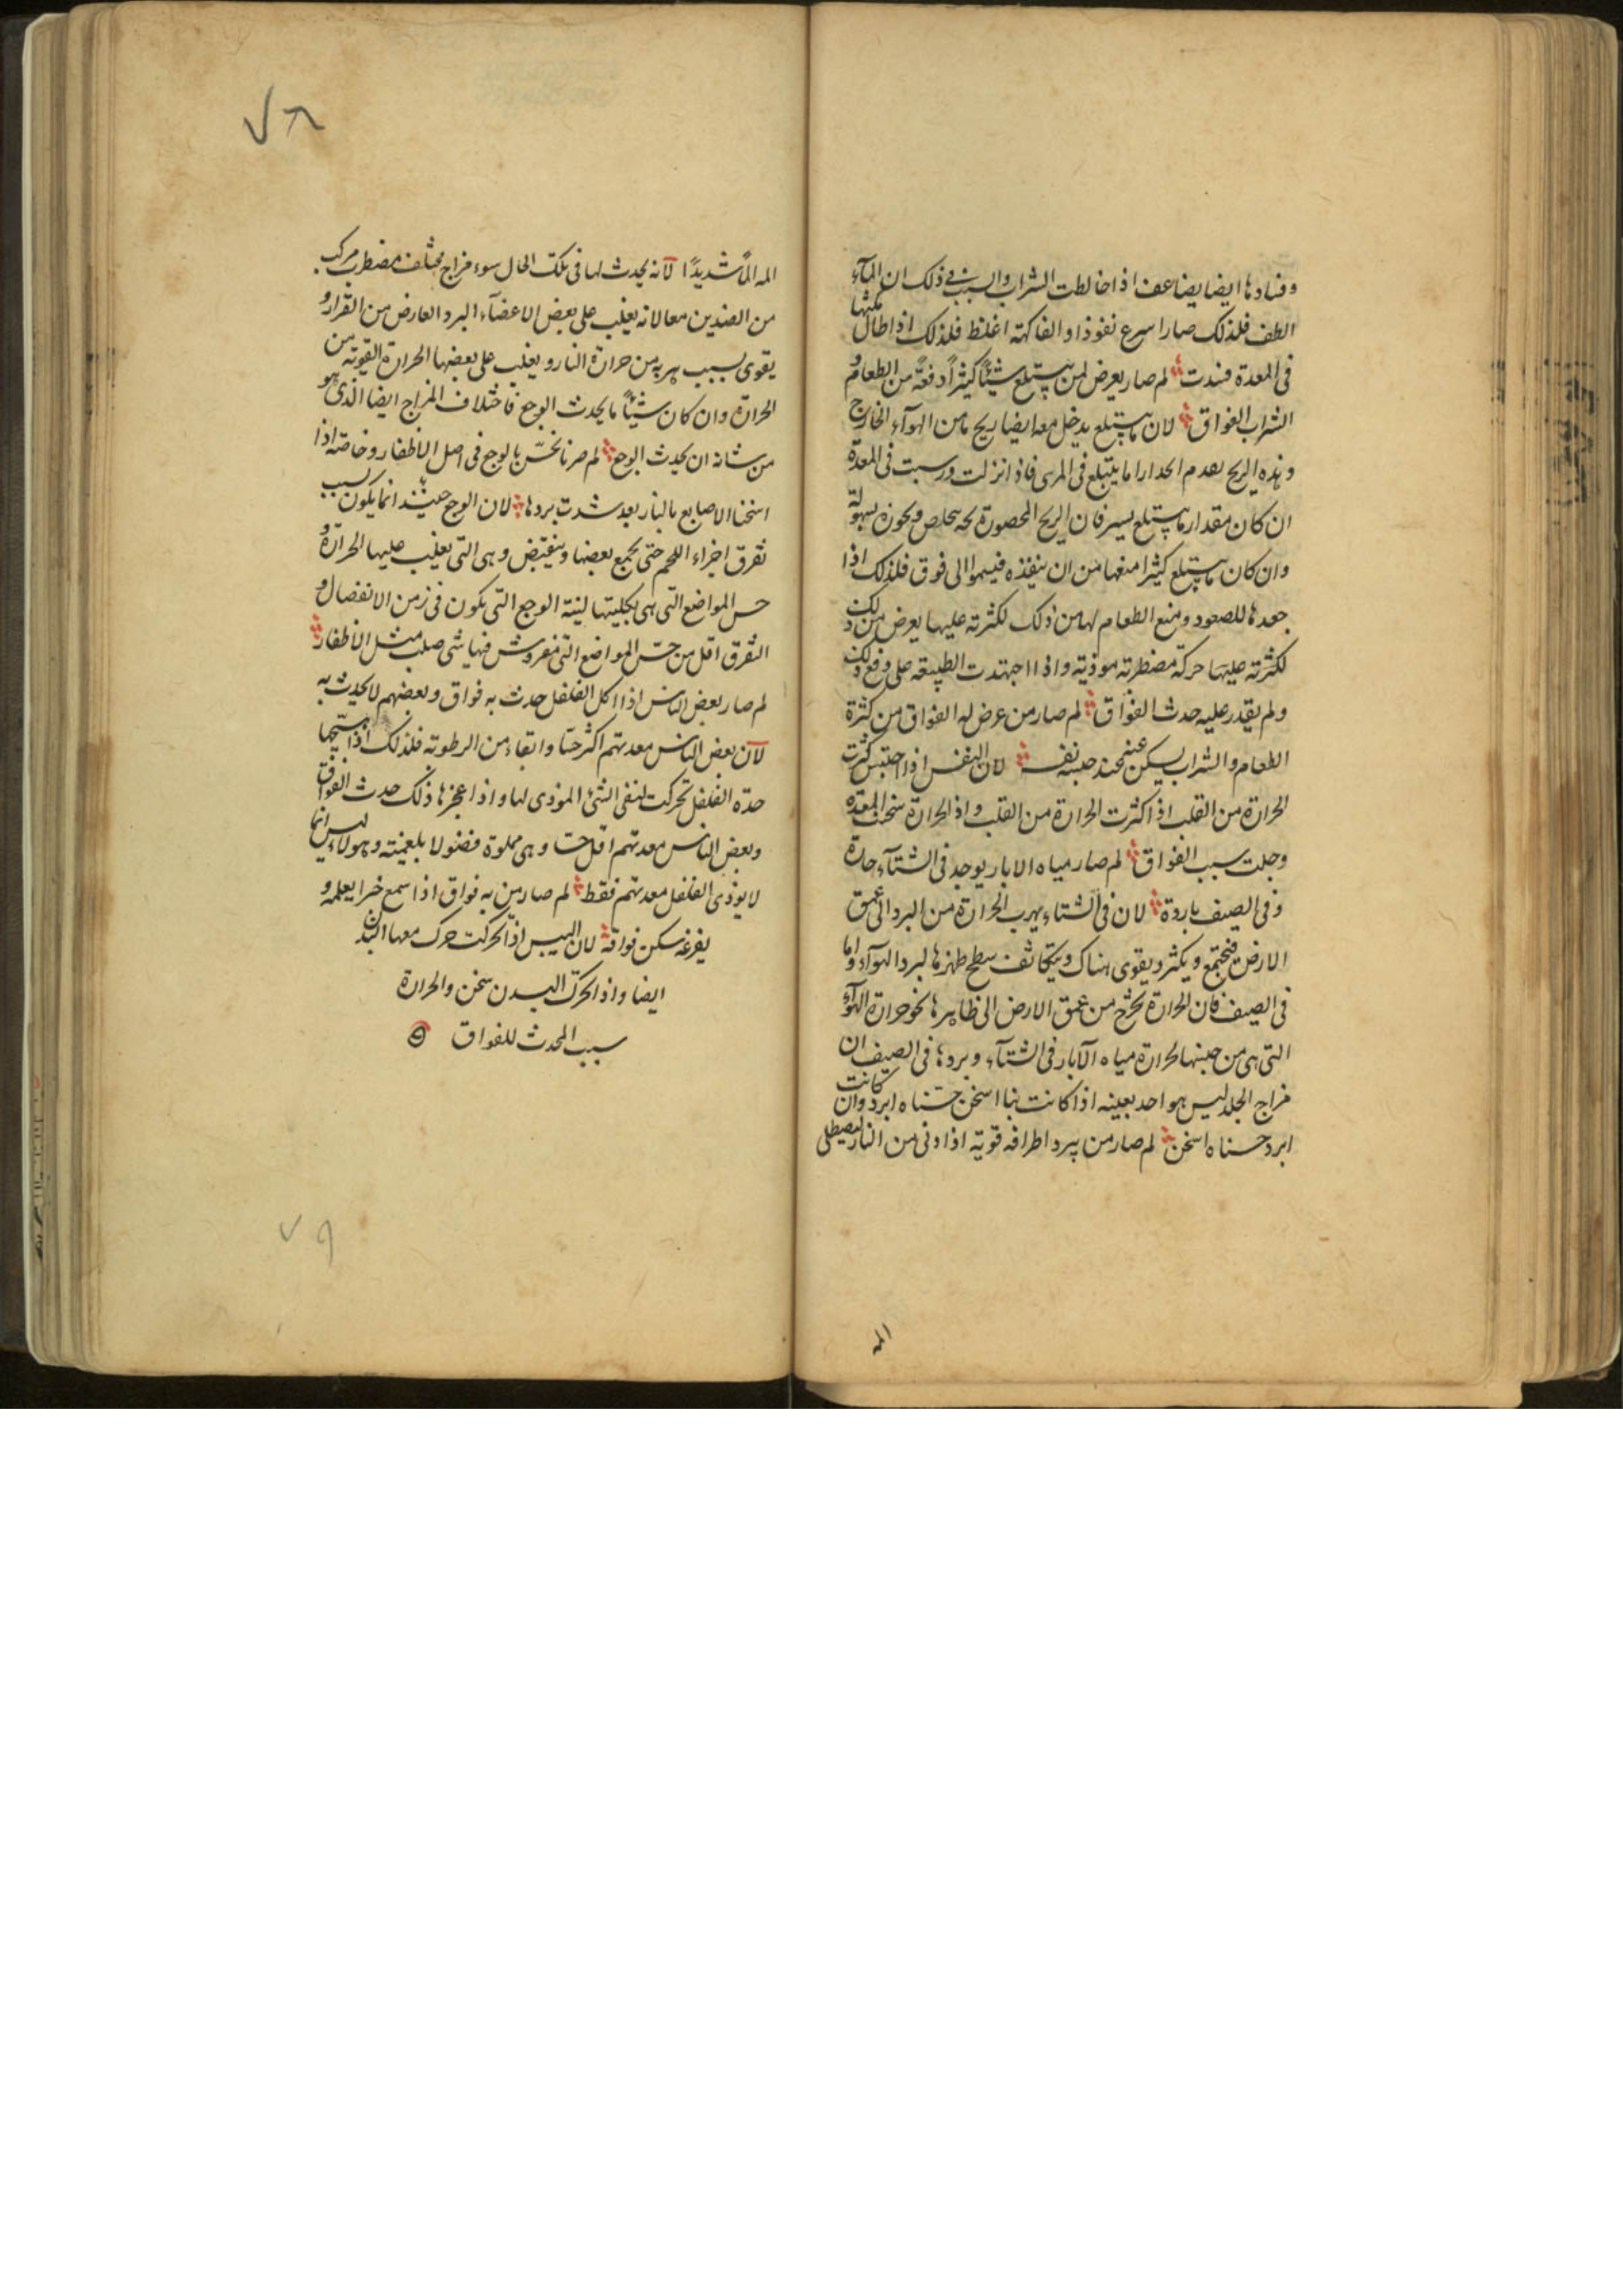 وفسادها ايضا يضاعف اذا خالطت الشراب والسبب فى ذلك ان المآء
الطف فلذلك صار اسرع نفوذا والفاكهة اغلظ فلذلك اذا طال مكثها
فى المعدة فسدت لم صار يعرض لمن يبتلع شيئًا كثيرًا دفعةً من الطعام و
الشراب الفواق لان ما يبتلع يدخل معه ايضا ريح ما من الهوآء الخارج
وهذه الريح يعدم انحدارا ما يبتلع فى المرى فاذا نزلت ورسبت فى المعدة
ان كان مقدار ما يبتلع يسير فان الريح المحصورة تحته يتخلص ويجوزه بسهولة
وان كان ما يبتلع كثيرا منعها من ان ينفذه فيسموا الى فوق فلذلك اذا
جهدها للصعود ومنع الطعام لها من ذلك لكثرته عليها يعرض من ذلك
لكثرته عليها حركة مضطربة موذية واذا اجتهدت الطبيعة على دفع ذلك
ولم يقدر عليه حدث الفواق لم صار من عرض له الفواق من كثرة
الطعام والشراب يسكن عنه عند حبسه نفسه لان النفس اذا احتبس كثرت
الحرارة من القلب اذ اكثرت الحرارة من القلب واذ الحرارة سخنت المعدة
وحلت سبب الفواق لم صار مياه الابار يوجد فى الشتآء حارة
وفى الصيف باردة لان فى الشتاء يهرب الحرارة من البرد الى عمق
الارض فيجتمع ويكثر ويقوى هناك ويتكاثف سطح ظهرها لبرد الهوآء واما
فى الصيف فان الحرارة يخرج من عمق الارض الى ظاهرها نحو حرارة الهوآء
التى هى من جنسها لحرارة مياه الآبار فى الشتآء وبردها فى الصيف ان
مزاج الجلد ليس هو احد بعينه اذا كانت بنا اسخن حسناه ابرد وان كانت
ابرد حسناه اسخن لم صار من يبرد اطرافه قوية اذا دنى من النار ليصطلى
المه
٧٨
المه المًا شديدًا لآنه يحدث لها فى تلك الحال سوء مزاج مختلف مضطرب مركب
من الضدين معا لانه يغلب على بعض الاعضآء البرد العارض من القرار و
يقوى بسبب هربه من حرارة النار ويغلب على بعضها الحرارة القوية من
الحرارة وان كان شيئًا ما يحدث الوجع فاختلاف المزاج ايضا الذى هو
من شانه ان يحدث الوجع لم صرنا نحسّ بالوجع فى اصل الاظفار وخاصة اذا
اسخنا الاصابع بالنار بعد شدت بردها لان الوجع حينئذ انما يكون بسبب
تفرق اجزاء اللحم حتى يجمع بعضها وينقبض وهى التى يغلب عليها الحرارة و
حس المواضع التى هى بكليتها لينة الوجع التى يكون فى زمن الانفصال و
التفرق اقل من حسّ المواضع التى مفروش فيها شى صلب مثل الاظفار
لم صار بعض الناس اذا اكل الفلفل حدث به فواق وبعضهم لا يحدث به
لآن بعض الناس معدتهم اكثر حسّا وانقاء من الرطوبة فلذلك اذا سحجها
حدّة الفلفل تحركت لنفى الشئ الموذى لها واذا عجزها ذلك حدث الفواق
وبعض الناس معدتهم اقل حسّا وهى مملوة فضولا بلغمية وهولاء ليس انما
لا يوذى الفلفل معدتهم فقط لم صار من به فواق اذا سمع خبرا يعلمه و
يفزعه سكن فواقه لان النفس اذا تحركت حرك معها البدن
ايضا واذا تحرك البدن سخن والحرارة
سبب المحدث للفواق
٧٩